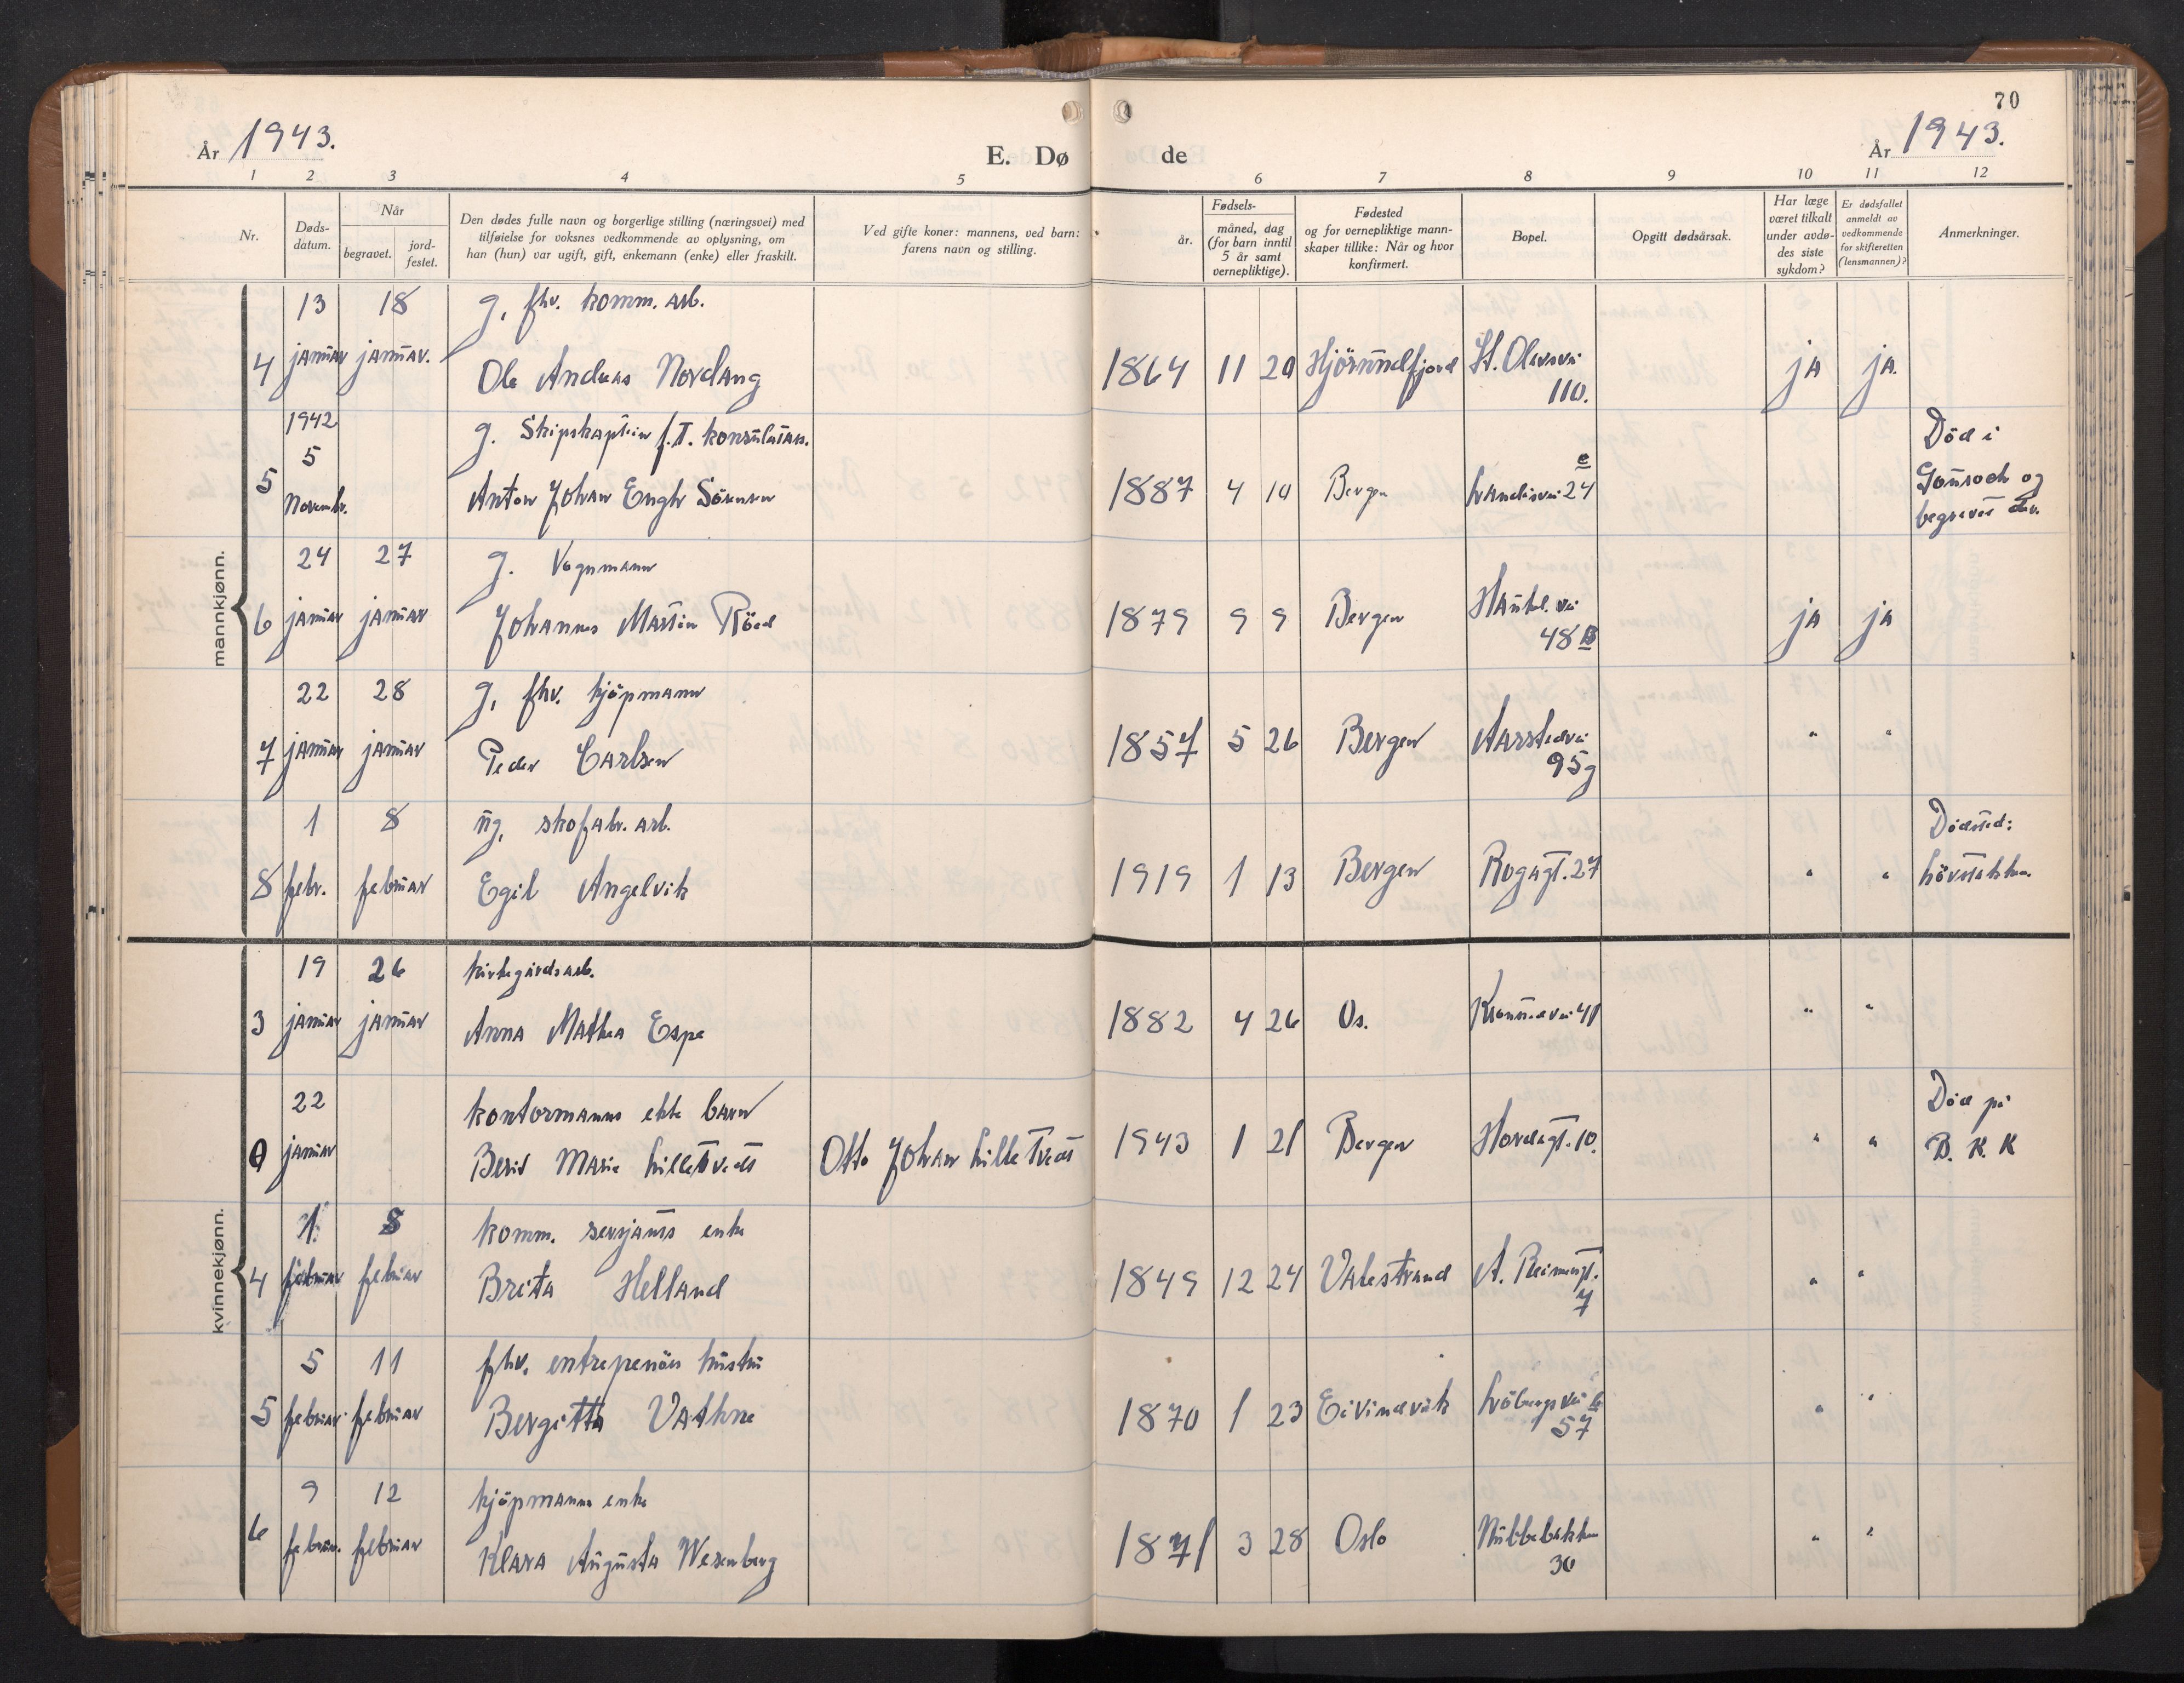 70
År 1943.
E. Dø
de
År 1943.
1 2 3 4 5 6 7 8 9 10 11 12
Nr.
Døds-
datum.
Når
begravet.
jord-
festet.
Den dødes fulle navn og borgerlige stilling (næringsvei) med
tilføielse for voksnes vedkommende av oplysning, om
han (hun) var ugift, gift, enkemann (enke) eller fraskilt.
Ved gifte koner: mannens, ved barn:
farens navn og stilling.
Fødsels-
år.
måned, dag
(for barn inntil
5 år samt
vernepliktige).
Fødested
og for vernepliktige mann-
skaper tillike: Når og hvor
konfirmert.
Bopel.
Opgitt dødsårsak.
Har læge
været tilkalt
under avdø-
des siste
sykdom?
Er dødsfallet
anmeldt av
vedkommende
for skifteretten
(lensmannen)?
Anmerkninger.
mannkjønn.
13 18 g, fhv. komm. arb.
4 januar januar. Ole Andreas Nordang 1864 11 20 Hjörundfjord St. Olavsvei
110. ja ja.
1942
5 g. Skipskaptein f.T.
5 Novembr. Anton Johan Engh Sörensen 1887 4 10 Bergen 24 e
Död i
og
begravet der.
24 27 g. Vognmann
6 januar januar Johannes Martin Röed 1879 9 9 Bergen Haukel. vei
48 B ja ja
22 28 g, fhv. kjöpmann
7 januar januar Peder Carlsen 1857 5 26 Bergen Aarstadvei
95 g " "
1 8 ug, skofabr. arb.
8 febr. februar Egil Angelvik 1919 1 13 Bergen Rogagt. 27 " "
Dödssted:
Lövstakken
kvinnekjønn.
19 26 kirkegårdsarb.
3 januar januar Anna Mathea Espe 1882 4 26 Os. 41 " "
22 kontormanns ekte barn
0 januar Berit Marie Lilletvedt Otto Johan Lilletvedt 1943 1 21 Bergen Hordagt. 10. " "
Död på
B. K. K
1. 8 komm. sersjants enke
4 februar februar Brita Helland 1849 12 24 Valestrand A. Reimersgt.
7 " "
5 11 fhv. entrepenörs hustru
5 februar februar Bergitta Vathne 1870 1 23 Eivindvik Lövbergsvei
57 " "
9 12 kjöpmanns enke
6 februar. februar Klara Augusta Wesenberg 1871 3 28 Oslo Nubbebakken
30 " "